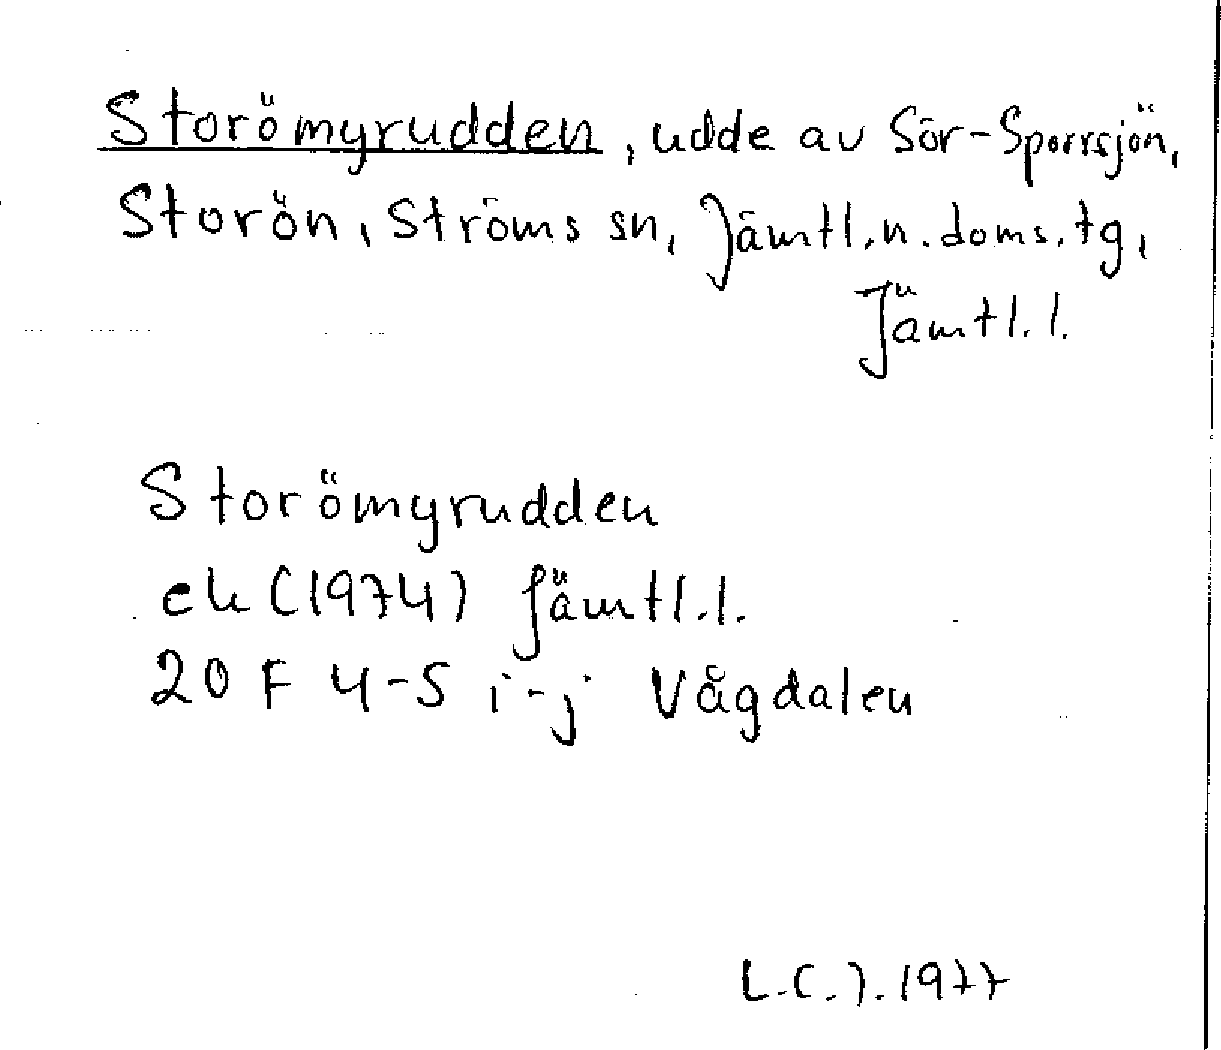 Storömyrudden, udde av Sör-Sporrsjön,
Storön, Ströms sn, Jämtl.n.doms.tg,
Jämtl.l.
Storömyrudden
ek (1974) Jämtl.l.
20 F 4-5 i-j Vågdalen
L.C.J. 1977